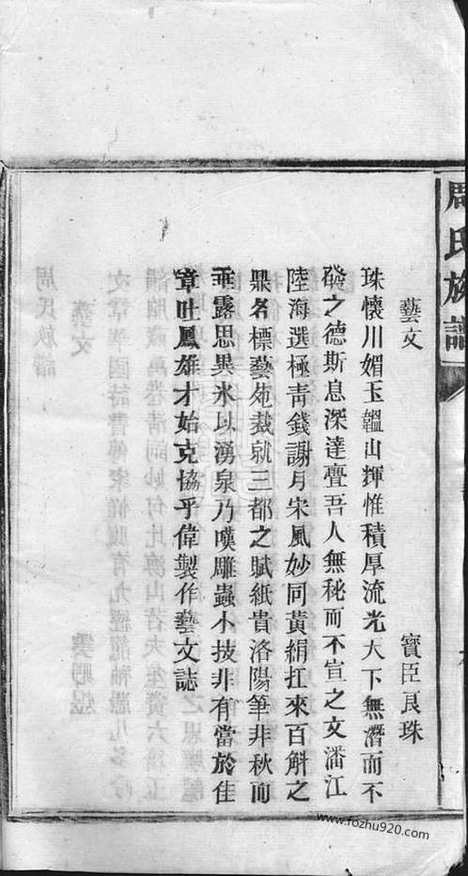 周氏族譜
藝文
寶臣良珠
珠懷川媚玉韞山輝惟積厚流光天下無潛而不
發之德斯息深達亹吾人無秘而不宣之文潘江
陸海選極青錢謝月宋風妙同黃絹扛來百斛之
鼎名標藝苑裁就三都之賦紙貴洛陽筆非秋而
垂露思異氷以湧泉乃嘆雕蟲小技非有當於佳
章吐鳳雄才始克協乎偉製作藝文誌
www.fozhu920.com